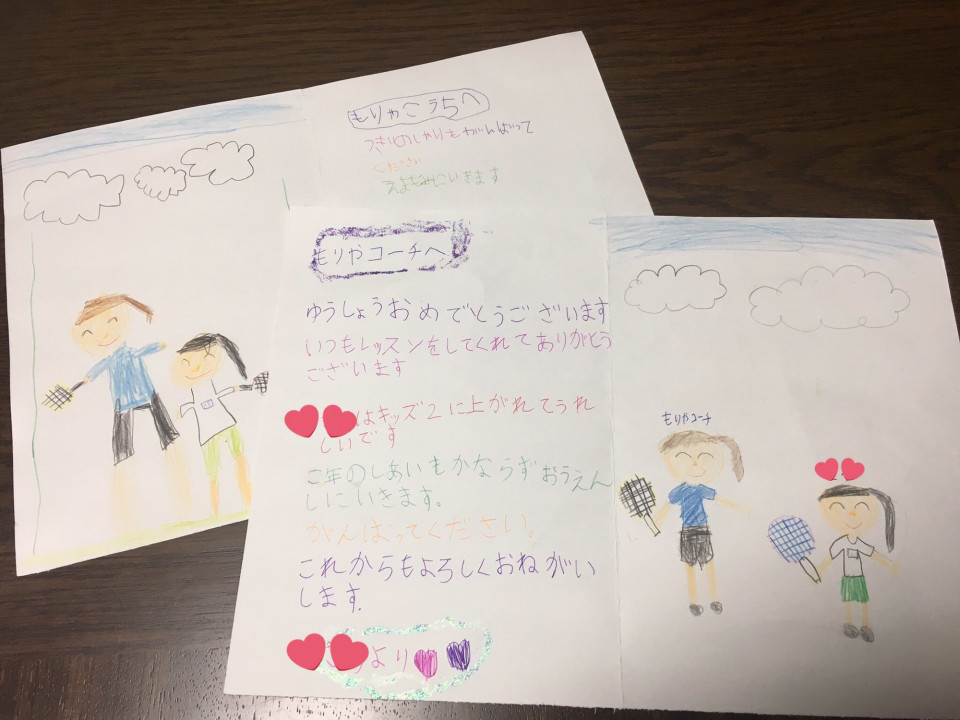 もりやこうちへ
つぎのしやいもがんばって
ください
えよおみにいきます
もりやコーチへ
ゆうしょうおめでとうございます
いつもレッスンをしてくれてありがとう
ございます
はキッズ2に上がれてうれ
しいです
こ年のしあいもかならずおうえん
しにいきます。
がんばってください。
これからもよろしくおねがい
します.
より
もりやコーチ